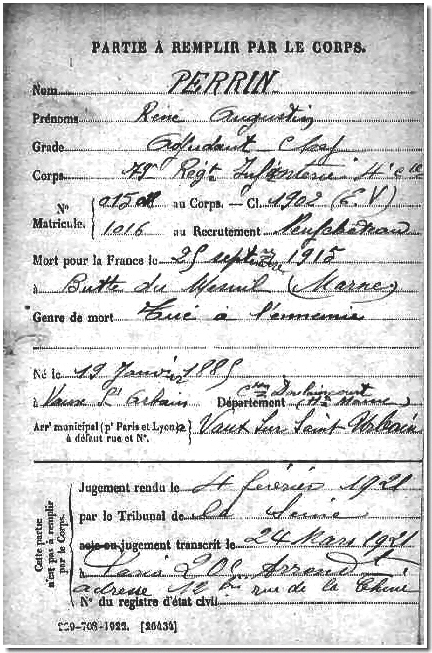 PARTIE À REMPLIR PAR LE CORPS.
Nom PERRIN
Prénoms René Augustin
Grade Adjudant Chef
Corps 79e Régt Infanterie 4e Cie
No Matricule. 015 au Corps. — Cl. 1902 (E.V)
1016 au Recrutement Neufchateau
Mort pour la France le 25 septembre 1915
à Butte du Mesnil (Marne)
Genre de mort Tué à l'ennemi
Né le 19 Janvier 1885
à Vaux St Urbain Département Hte Marne
Con Doulaincourt
Arrt municipal (pr Paris et Lyon), à défaut rue et No. Vaux sur Saint Urbain
Cette partie n'est pas à remplir par le Corps.
Jugement rendu le 4 février 1921
par le Tribunal de la Seine
acte ou jugement transcrit le 24 Mars 1921
à Paris 20e Arrondt
adresse 12 rue de la Chine
No du registre d'état civil
229-708-1922. [26434]